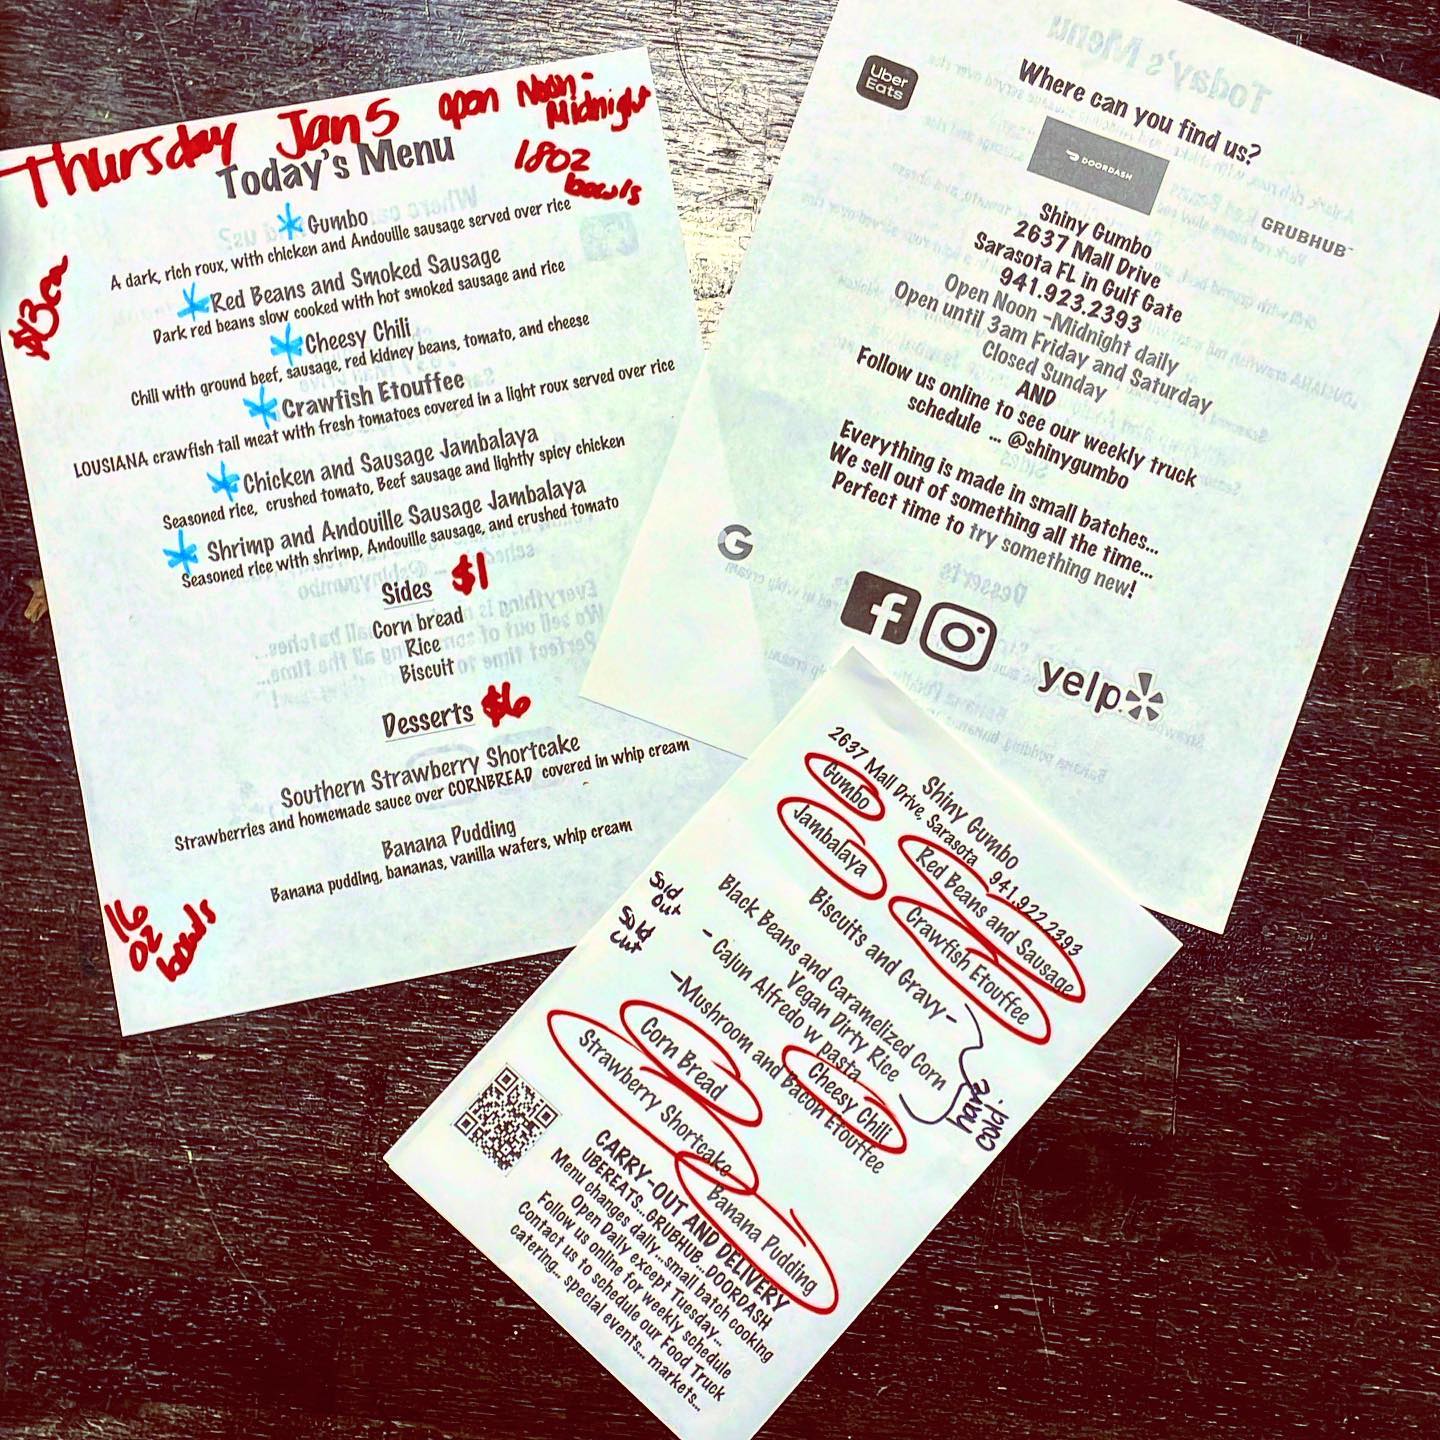 Thursday Jan 5 open Noon-
Midnight
Today's Menu
18oz
bowls
Gumbo
A dark, rich roux, with chicken and Andouille sausage served over rice
Red Beans and Smoked Sausage
Dark red beans slow cooked with hot smoked sausage and rice
Cheesy Chili
Chili with ground beef, sausage, red kidney beans, tomato, and cheese
Crawfish Etouffee
LOUSIANA crawfish tail meat with fresh tomatoes covered in a light roux served over rice
Chicken and Sausage Jambalaya
Seasoned rice, crushed tomato, Beef sausage and lightly spicy chicken
Shrimp and Andouille Sausage Jambalaya
Seasoned rice with shrimp, Andouille sausage, and crushed tomato
Sides $1
Corn bread
Rice
Biscuit
Desserts $6
Southern Strawberry Shortcake
Strawberries and homemade sauce over CORNBREAD covered in whip cream
Banana Pudding
Banana pudding, bananas, vanilla wafers, whip cream
16
oz
bowls
Uber
Eats
Where can you find us?
DOORDASH
GRUBHUB
Shiny Gumbo
2637 Mall Drive
Sarasota FL in Gulf Gate
941.923.2393
Open Noon -Midnight daily
Open until 3am Friday and Saturday
Closed Sunday
AND
Follow us online to see our weekly truck
schedule ... @shinygumbo
Everything is made in small batches...
We sell out of something all the time...
Perfect time to try something new!
G
f
yelp
Shiny Gumbo
2637 Mall Drive, Sarasota 941.922.2393
Gumbo
Red Beans and Sausage
Jambalaya
Crawfish Etouffee
Biscuits and Gravy-
Black Beans and Caramelized Corn
Vegan Dirty Rice
- Cajun Alfredo w pasta
Cheesy Chili
-Mushroom and Bacon Etouffee
Sold
Out
Sold
Out
have
cold.
Corn Bread
Strawberry Shortcake
Banana Pudding
CARRY-OUT AND DELIVERY
UBEREATS...GRUBHUB...DOORDASH
Menu changes daily...small batch cooking
Open Daily except Tuesday...
Follow us online for weekly schedule
Contact us to schedule our Food Truck
catering... special events... markets...